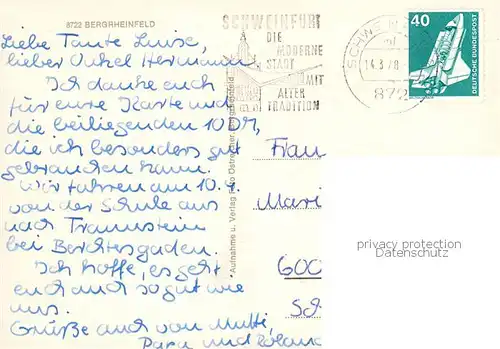 8722 BERGRHEINFELD
Liebe Tante Luise,
lieber Onkel Hermann
Ich danke euch
für eure Karte und
die beiliegenden 10 DM,
die ich besonders gut
gebrauchen kann.
Wir fahren am 10.4.
von der Schule aus
nach Traunstein
bei Berchtesgaden.
Ich hoffe, es geht
euch auch so gut wie
uns.
Grüße auch von Mutti,
Papa und Roland
Aufnahme u. Verlag Foto
SCHWEINFURT
DIE
MODERNE
STADT
MIT
ALTER
TRADITION
SCHWEI
14.3.78
872
40
DEUTSCHE BUNDESPOST
Frau
Mari
600
Sch
privacy protection
Datenschutz